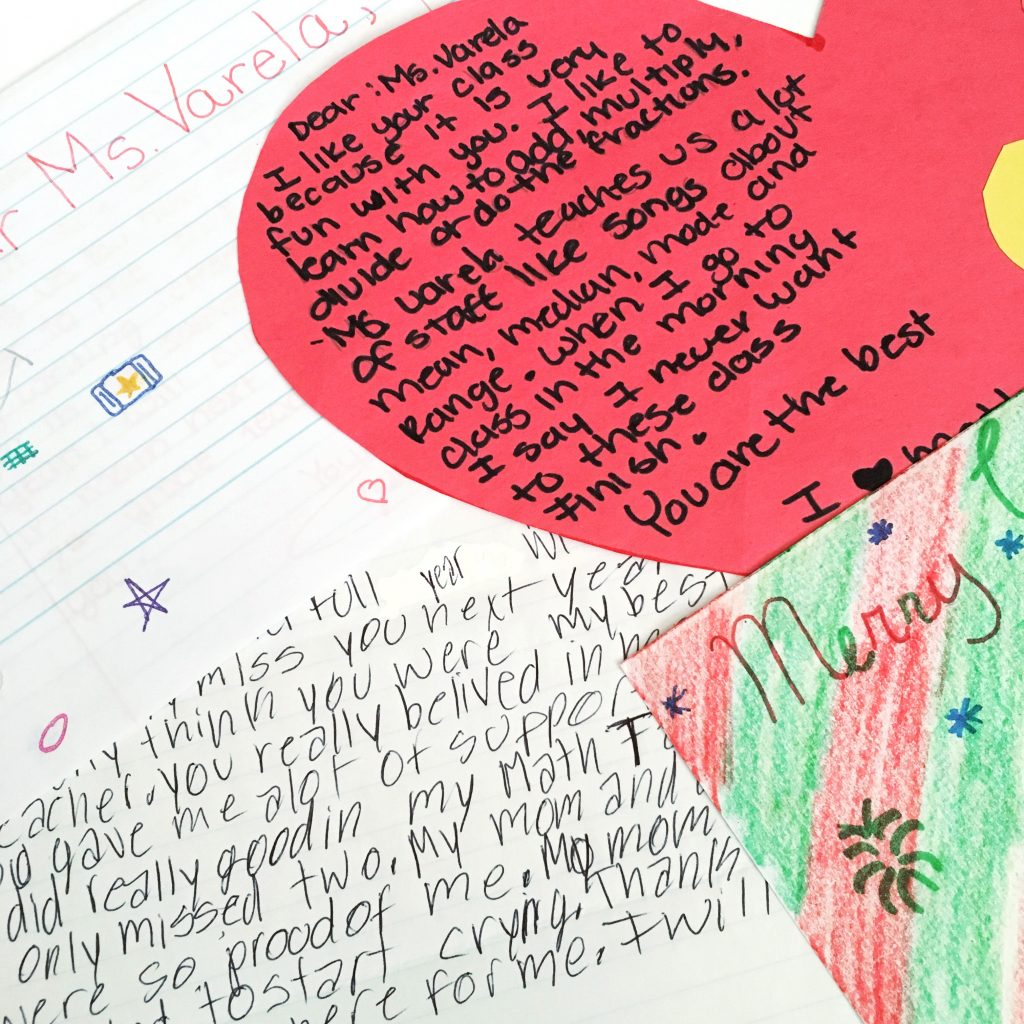 Ms. Varela,
Dear: Ms. Varela
I like your class
because it is very
fun with you. I like to
learn how to add, multiply,
divide or do the fractions.
-Ms varela teaches us a lot
of staff like songs about
mean, median, mode and
Range. When I go to
class in the morning
I say I never want
to these class
finish.
You are the best
I ♥
Merry
full year
miss you next year
think you were my best
eacher. you really belived in
gave me alot of suppor
did really good in my Math T
only missed two. My mom and
were so proud of me. My mom
to start crying. Thank
here for me. I will